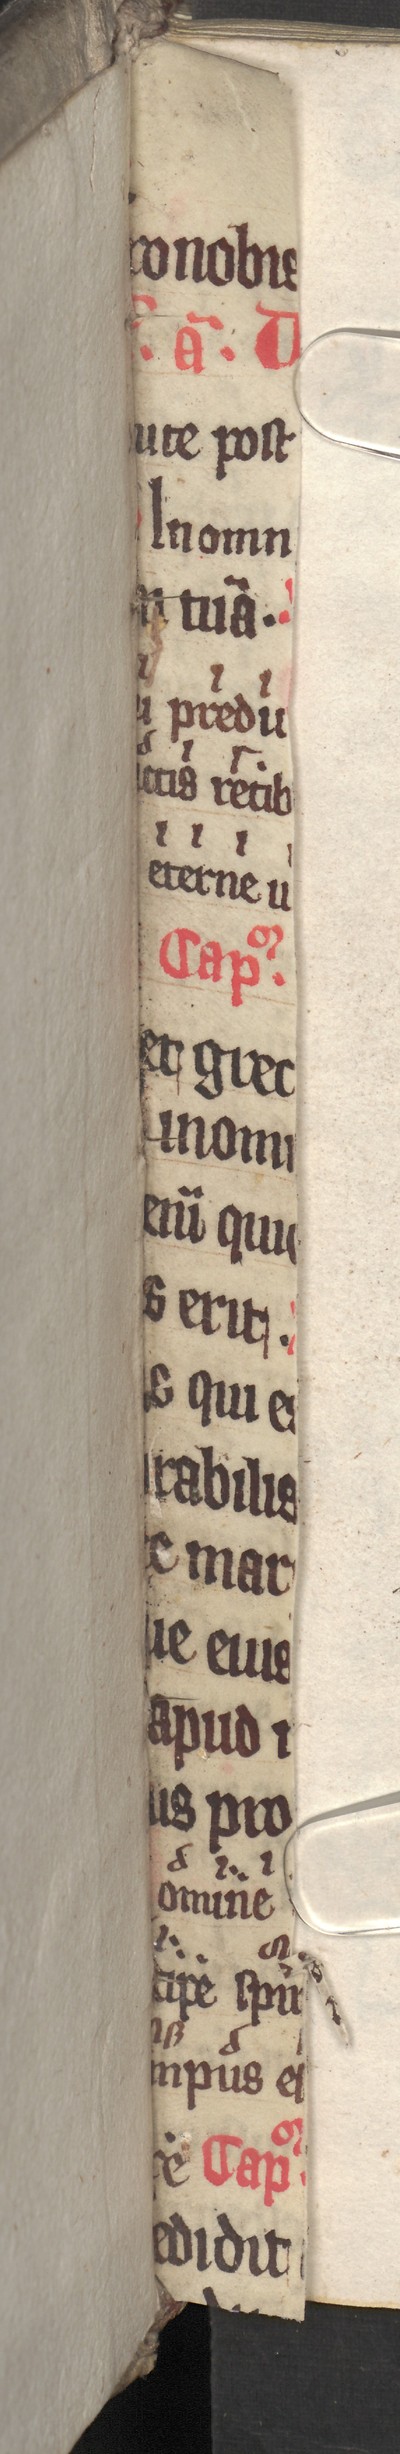 ronobis
ã. D
ute post
In nomn
m tuã.
u predu
ictis retib
eterne u
Capᵐ.
et grec
inomi
enũ quic
s erit.
s qui es
rabilis
te mar
ue eius
apud i
us pro
omine
cipe spũ
mpus ei
Capᵐ
edidit